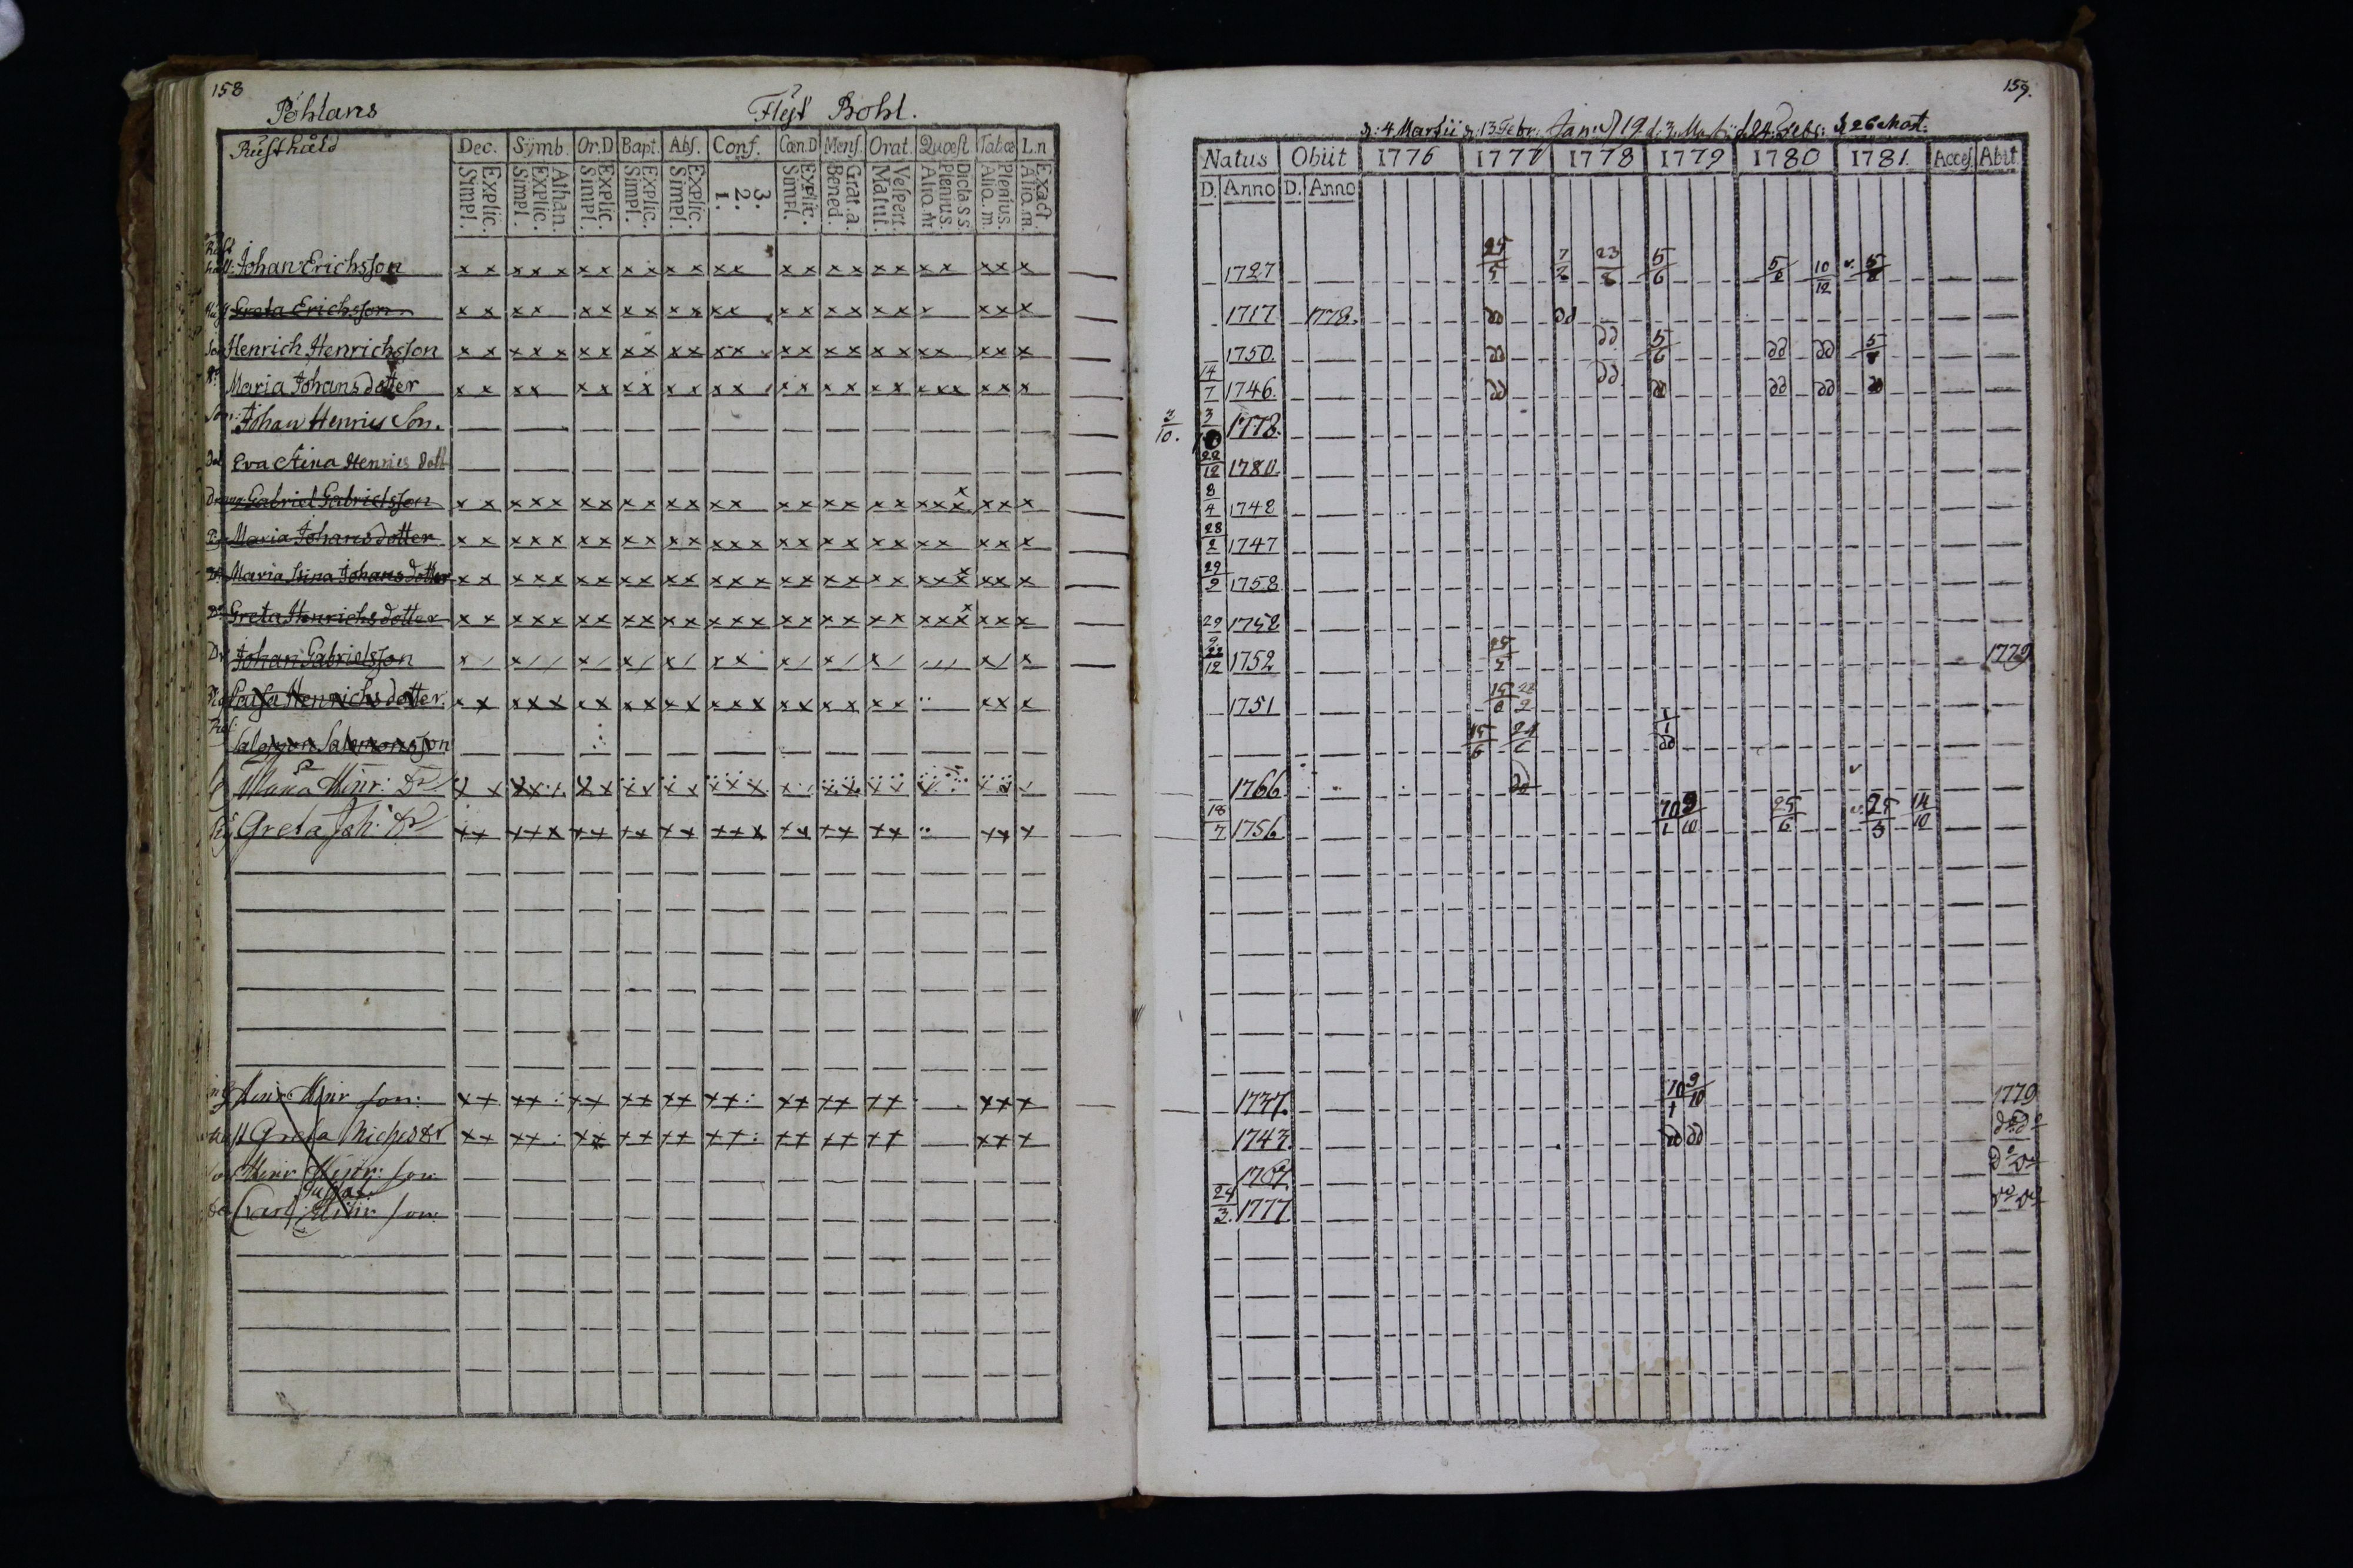 158
Pohlans Flyt Bohl.
Rusthåld
Dec. Symb. Or.D Bapt. Abs. Conf. Cæn.D Mens. Orat. Quæst Tabœ L.n
Explic. Simpl. Athan. Explic. Simpl. Explic. Simpl. Explic. Simpl. Explic. Simpl. 3. 2. 1. Explic. Simpl. Grat. a. Bened. Vespert. Matut. Dicta S S. Plenius. Aliq. m Plenius. Aliq. m. Exact. Aliq. m.
Johan Erichsson
Greta Erichsson
Henrich Henrichsson
Maria Johansdotter
Johan Henrics Son.
Eva Stina Henrics dott
Gabriel Gabrielsson
Maria Johansdotter
Maria Stina Johansdotter
Greta Henrichsdotter
Johan Gabrielsson
Henrichsdotter
Salomon Salomonsson
Maria Hinr: Dr
Greta Joh: Dr
Hinr Hinr son:
Greta Michesdr
Hinr Hinr: son
Gustav
Carl Hinr son:
159.
d: 4 Martii d: 13 Febr: Jan: d 19 d: 3 Martii d 24 Febr: d 26 Mart:
Natus Obiit 1776 1777 1778 1779 1780 1781. Acces. Abit.
D. Anno D. Anno
1727 25/5 7/2 23/8 5/6 5/6 10/12 5/8
1717 1778. do dd
1750. do dd 5/6 dd dd 5/8
14/7 1746. do dd do dd dd do
3/10. 3/10 1778.
22/12 1780.
8/4 1748
28/2 1747
29/9 1758
29/9 1758
22/12 1752 25/5 1779
1751 15/6
15/6 24/6 1/1 do
1766 do
18/7 1756 10/1 9/10 25/6 25/5 14/10
1737. 10/1 9/10 1779
1743. do do do do
1767. do do
24/3. 1777. do do